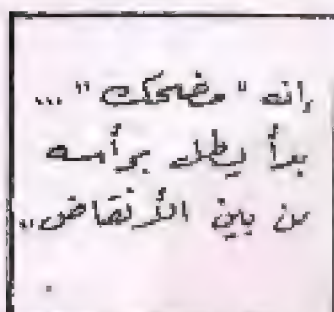 إنه "مضحك"...
بدأ يطل برأسه
من بين الأنقاض..